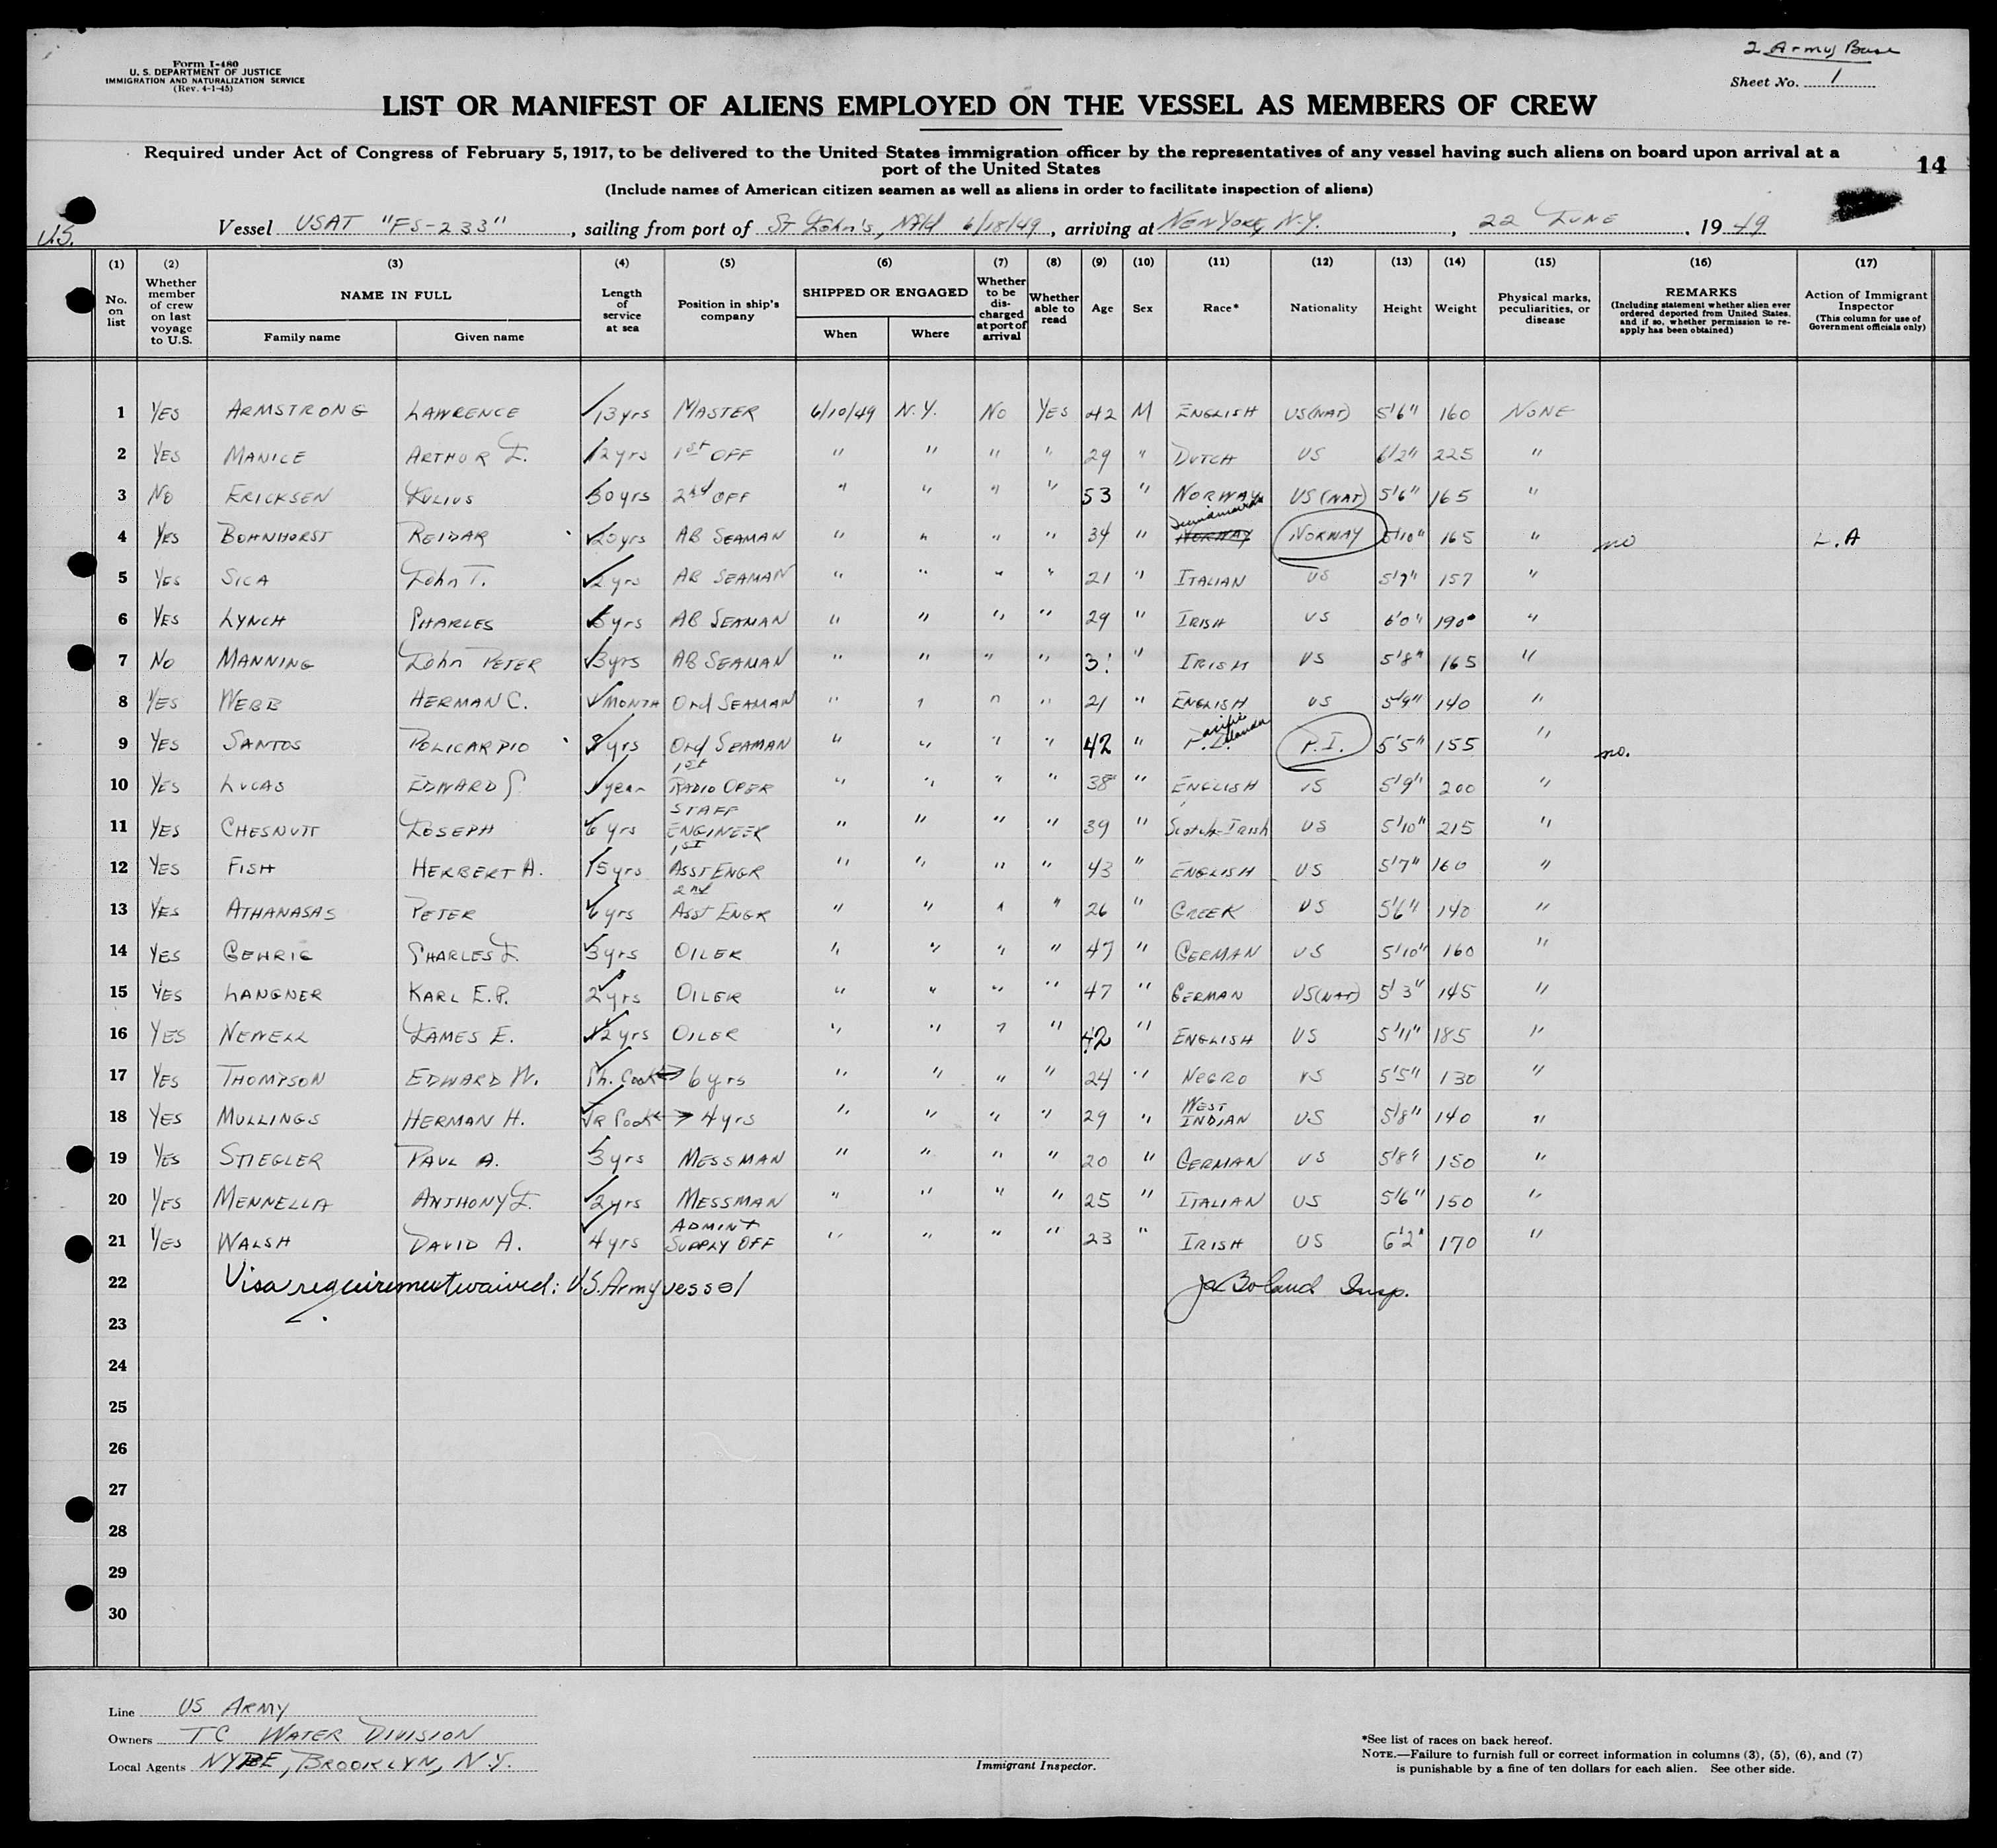 2 Army Base
Form I-480
U. S. DEPARTMENT OF JUSTICE
IMMIGRATION AND NATURALIZATION SERVICE
(Rev. 4-1-45)
Sheet No. 1
LIST OR MANIFEST OF ALIENS EMPLOYED ON THE VESSEL AS MEMBERS OF CREW
Required under Act of Congress of February 5, 1917, to be delivered to the United States immigration officer by the representatives of any vessel having such aliens on board upon arrival at a
port of the United States
14
(Include names of American citizen seamen as well as aliens in order to facilitate inspection of aliens)
U.S.
Vessel USAT "FS-233", sailing from port of St John's, Nfld 6/18/49, arriving at New York, N.Y., 22 June, 1949
(1) (2) (3) (4) (5) (6) (7) (8) (9) (10) (11) (12) (13) (14) (15) (16) (17)
No. on list
Whether member of crew on last voyage to U.S.
NAME IN FULL
Family name
Given name
Length of service at sea
Position in ship's company
SHIPPED OR ENGAGED
When
Where
Whether to be discharged at port of arrival
Whether able to read
Age
Sex
Race*
Nationality
Height
Weight
Physical marks, peculiarities, or disease
REMARKS
(Including statement whether alien ever ordered deported from United States, and if so, whether permission to re-apply has been obtained)
Action of Immigrant Inspector
(This column for use of Government officials only)
1 YES ARMSTRONG LAWRENCE 13 yrs MASTER 6/10/49 N.Y. NO YES 42 M ENGLISH US (NAT) 5'6" 160 NONE
2 YES MANICE ARTHUR J. 12 yrs 1st OFF " " " " 29 " DUTCH US 6'2" 225 "
3 NO ERICKSEN JULIUS 30 yrs 2nd OFF " " " " 53 " NORWAY US (NAT) 5'6" 165 "
4 YES BOHNHORST REIDAR 20 yrs AB SEAMAN " " " " 34 " NORWAY Scandinavian NORWAY 5'10" 165 " no L.A
5 YES SICA John T. 2 yrs AB SEAMAN " " " " 21 " ITALIAN US 5'7" 157 "
6 YES LYNCH CHARLES 5 yrs AB SEAMAN " " " " 29 " IRISH US 6'0" 190 "
7 NO MANNING John PETER 3 yrs AB SEAMAN " " " " 31 " IRISH US 5'8" 165 "
8 YES WEBB HERMAN C. 1 MONTH Ord SEAMAN " " " " 21 " ENGLISH US 5'9" 140 "
9 YES SANTOS POLICARPIO 8 yrs Ord SEAMAN " " " " 42 " Pacific Islander P.I. 5'5" 155 " no.
10 YES LUCAS EDWARD C. 1 year 1st RADIO OPER " " " " 38 " ENGLISH US 5'9" 200 "
11 YES CHESNUTT JOSEPH 6 yrs STAFF ENGINEER " " " " 39 " Scotch-Irish US 5'10" 215 "
12 YES FISH HERBERT A. 15 yrs 1st ASST ENGR " " " " 43 " ENGLISH US 5'7" 160 "
13 YES ATHANASAS PETER 6 yrs 2nd ASST ENGR " " " " 26 " GREEK US 5'6" 140 "
14 YES GEHRIG CHARLES J. 3 yrs OILER " " " " 47 " GERMAN US 5'10" 160 "
15 YES LANGNER KARL E.P. 2 yrs OILER " " " " 47 " GERMAN US (NAT) 5'3" 145 "
16 YES NEWELL JAMES E. 12 yrs OILER " " " " 42 " ENGLISH US 5'11" 185 "
17 YES THOMPSON EDWARD W. Ch. Cook ↔ 6 yrs " " " " 24 " NEGRO US 5'5" 130 "
18 YES MULLINGS HERMAN H. JR Cook ↔ 4 yrs " " " " 29 " WEST INDIAN US 5'8" 140 "
19 YES STIEGLER PAUL A. 3 yrs MESSMAN " " " " 20 " GERMAN US 5'8" 150 "
20 YES MENNELLA ANTHONY J. 2 yrs MESSMAN " " " " 25 " ITALIAN US 5'6" 150 "
21 YES WALSH DAVID A. 4 yrs ADMIN + SUPPLY OFF " " " " 23 " IRISH US 6'2" 170 "
22 Visa requirement waived: U.S. Army vessel Boland Insp.
23
24
25
26
27
28
29
30
Line US ARMY
Owners TC WATER DIVISION
Local Agents NYPE, BROOKLYN, N.Y.
Immigrant Inspector.
*See list of races on back hereof.
NOTE.—Failure to furnish full or correct information in columns (3), (5), (6), and (7)
is punishable by a fine of ten dollars for each alien. See other side.